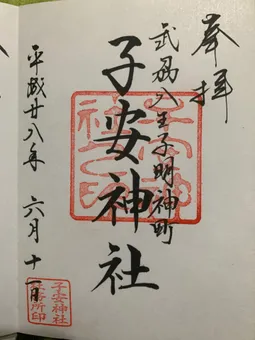 奉拝
武州八王子明神町
子安神社
平成廿八年 六月十一日
子安神社
社務所印